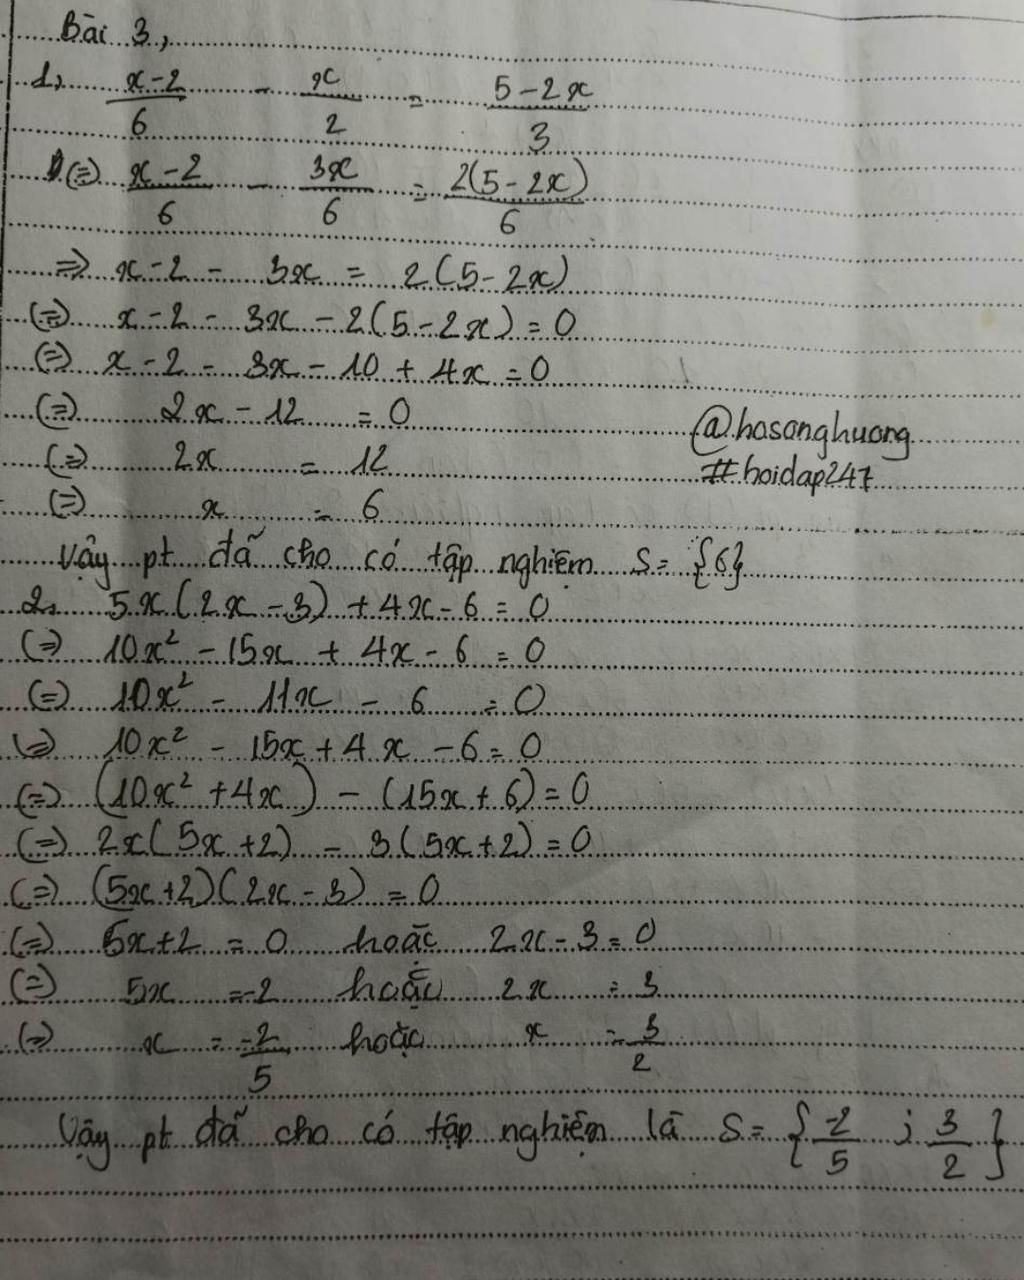 Bài 3,
1, x-2/6 - x/2 = 5-2x/3
(=) x-2/6 - 3x/6 = 2(5-2x)/6
=> x-2 - 3x = 2(5-2x)
(=) x-2 - 3x - 2(5-2x) = 0
(=) x-2 - 3x - 10 + 4x = 0
(=) 2x - 12 = 0
(=) 2x = 12
(=) x = 6
@hosonghuong
#hoidap247
Vậy pt đã cho có tập nghiệm S = {6}
2, 5x(2x-3) + 4x-6 = 0
(=) 10x² - 15x + 4x - 6 = 0
(=) 10x² - 11x - 6 = 0
(=) 10x² - 15x + 4x - 6 = 0
(=) (10x² + 4x) - (15x + 6) = 0
(=) 2x(5x+2) - 3(5x+2) = 0
(=) (5x+2)(2x-3) = 0
(=) 5x+2 = 0 hoặc 2x-3 = 0
(=) 5x = -2 hoặc 2x = 3
(=) x = -2/5 hoặc x = 3/2
Vậy pt đã cho có tập nghiệm là S = {-2/5 ; 3/2}